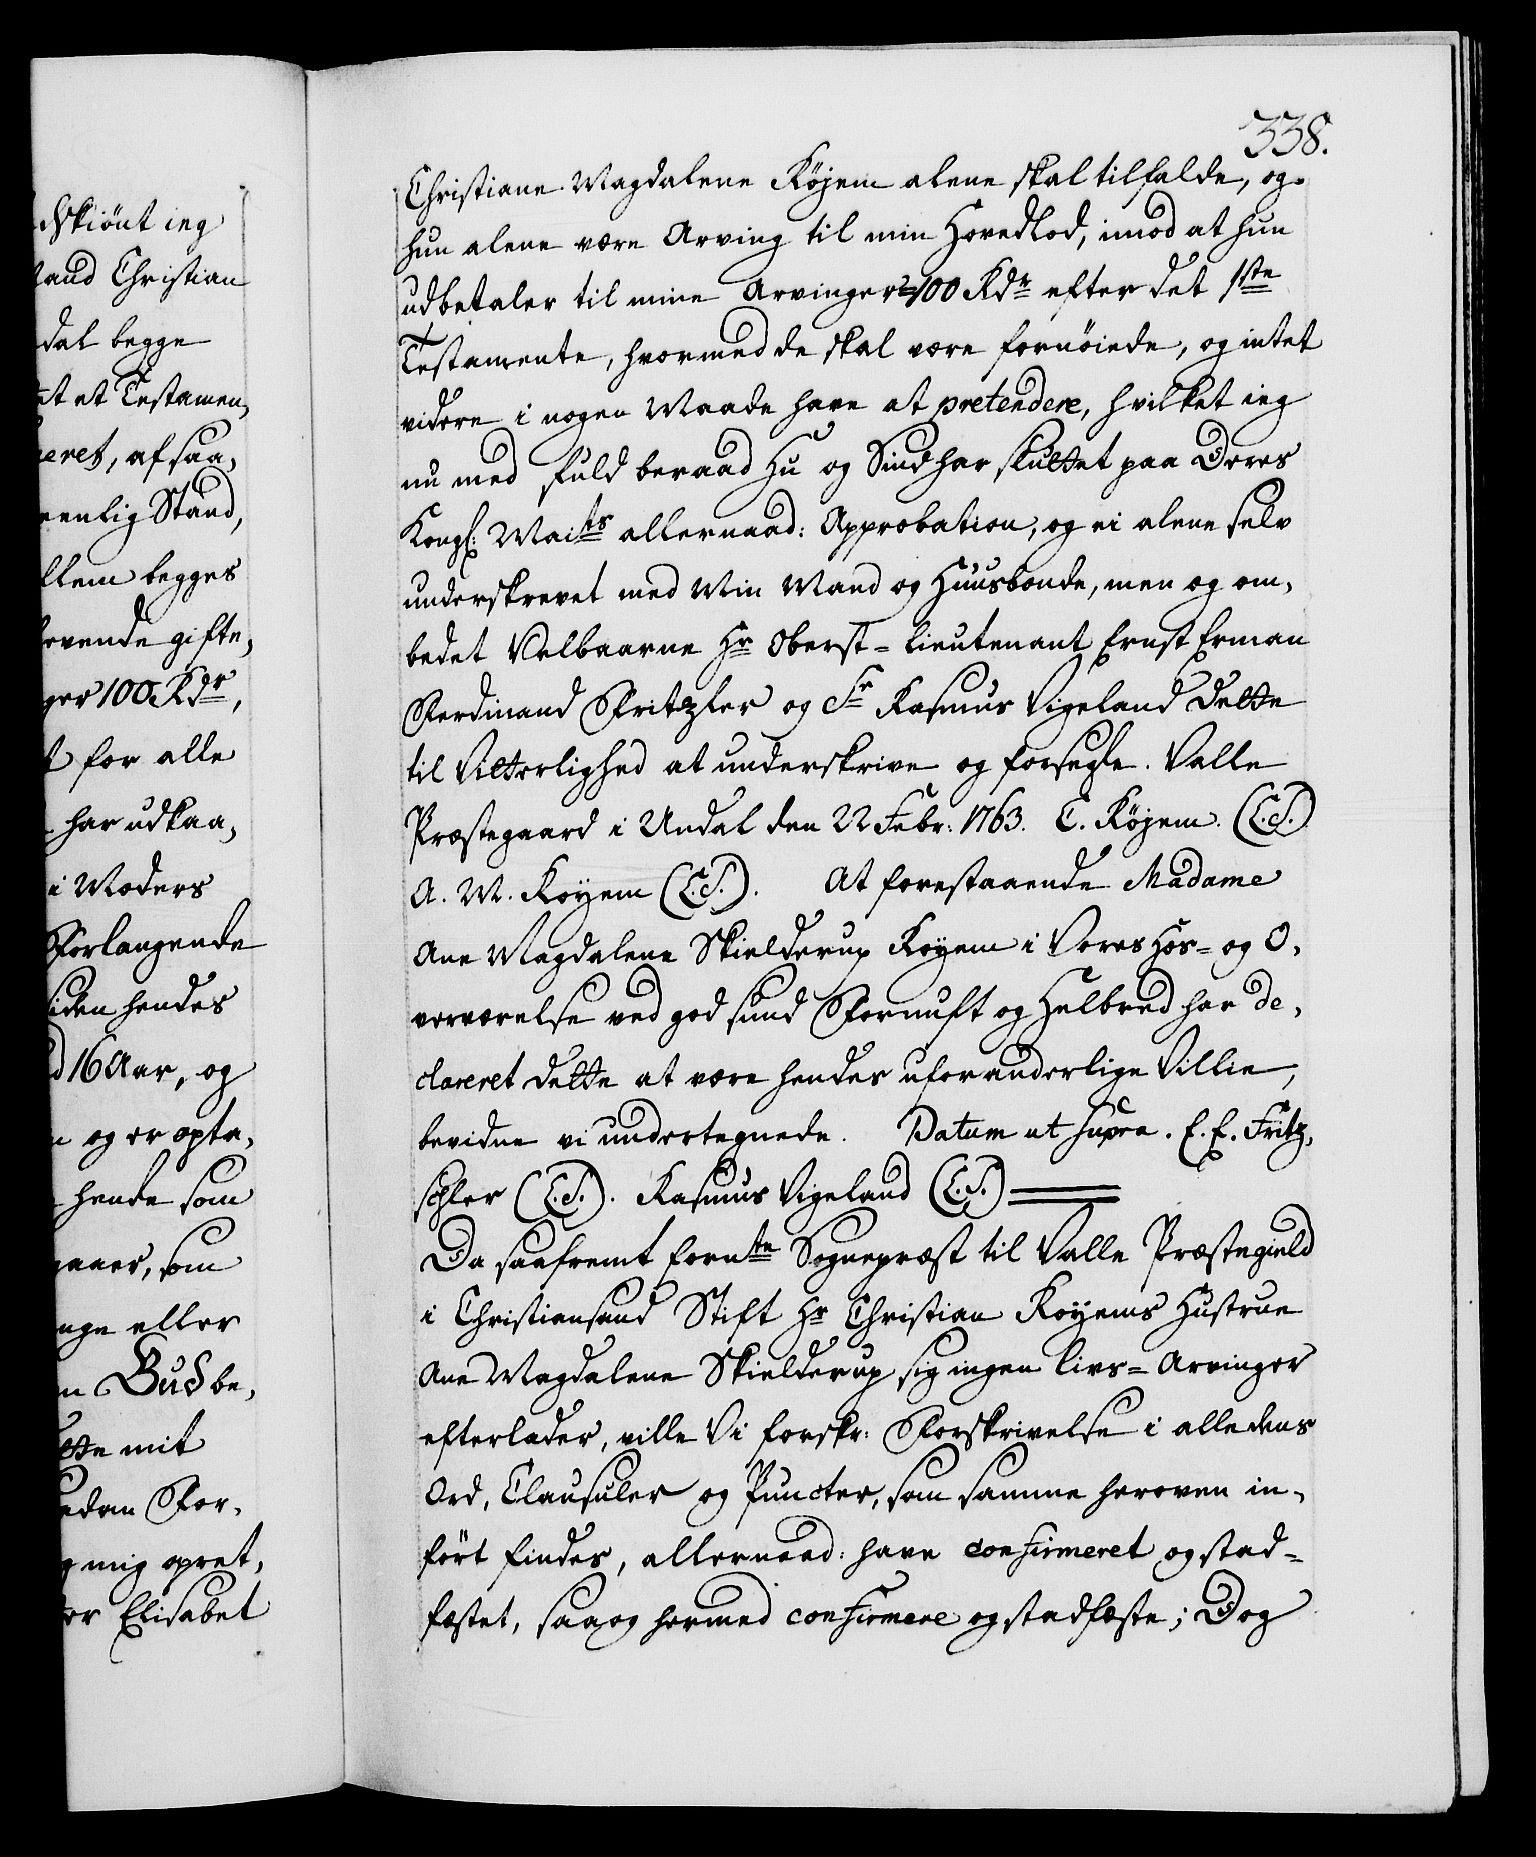 338.
Christiane Magdalene Köjem alene skal tilfalde, og
hun alene være Arving til min Hovedlod, imod at hun
udbetaler til mine Arvinger 100 Rdr efter det 1ste
Testamente, hvormed de skal være fornöiede, og intet
videre i nogen Maade have at pretendere, hvilket ieg
nu med fuld beraad Hu og Sind har sluttet paa Deres
Kongl: Maits allernaad: Approbation, og ei alene selv
underskrevet med Min Mand og Huusbonde, men og om,
bedet Velbaarne Hr Oberst=Lieutenant Ernst Erman
Ferdinand Fritzler og Sr Rasmus Vigeland dette
til Vitterlighed at underskrive og forsegle. Valle
Præstegaard i Undal den 22 Febr: 1763. C. Köjem. (L.S.)
A. M. Koyem (L.S.). At forestaaende Madame
Ane Magdalene Skielderup Koyem i Vores Hos= og O,
verværelse ved god sund Fornuft og Helbred har de,
clareret dette at være hendes uforanderlige Villie,
bevidne vi undertegnede. Datum ut supra. E. E. Fritz,
schler (L.S.). Rasmus Vigeland (L.S.)
Da saafremt fornte Sognepræst til Valle Præstegield
i Christiansand Stift Hr Christian Koyems Hustrue
Ane Magdalene Skielderup sig ingen Livs=Arvinger
efterlader, ville Vi forskr: Forskrivelse i alle dens
Ord, Clausuler og Puncter, som samme heroven in,
fört findes, allernaad: have confirmeret og stad=
fæstet, saa og hermed confirmere og stadfæste; Dog
skiönt ieg
Christian
dal begge
et Testamen,
eret, af saa,
eenlig Stand,
llem begges
levende gifte,
ger 100 Rdr,
for alle
har udkaa,
i Moders
Forlangende
siden hendes
16 Aar, og
og er opta,
hende som
som
eller
Bud be,
mit
For,
mig opret,
Elisabet